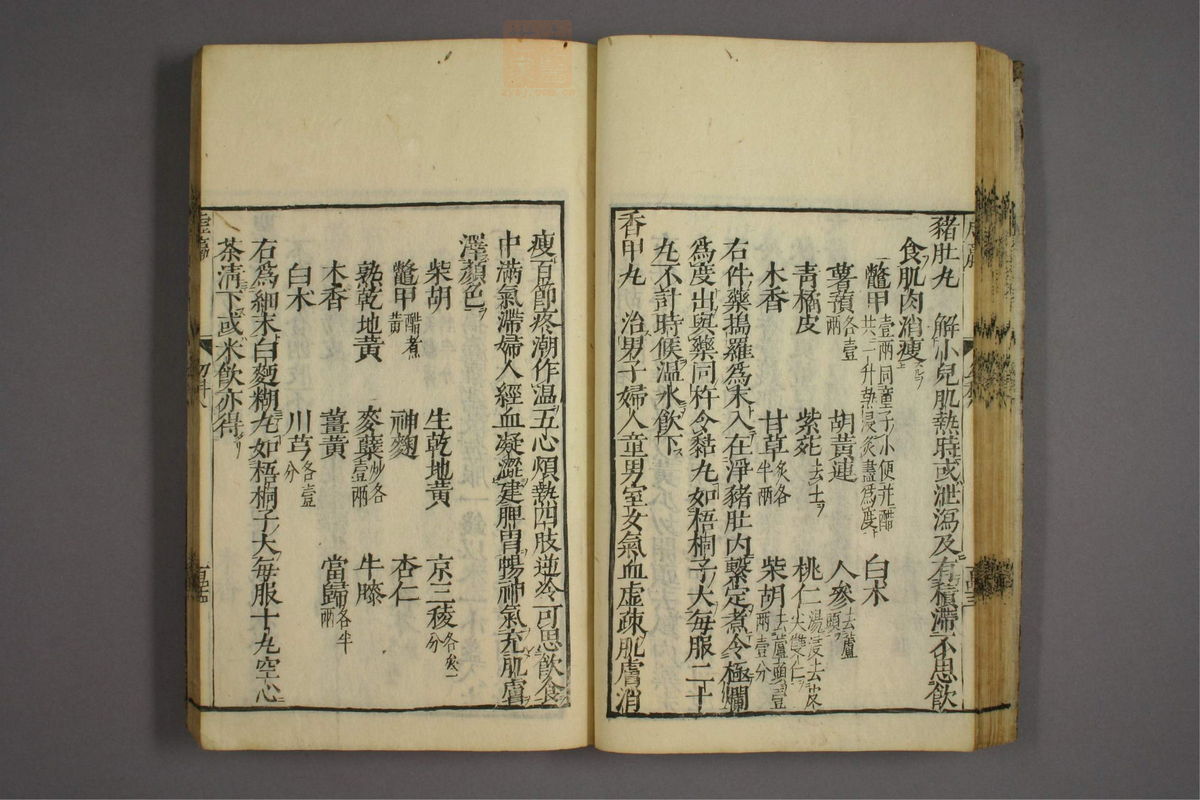 豬肚丸 解小兒肌熱時或泄瀉及有積滯不思飲
食肌肉消瘦
鼈甲壹兩同童子小便并醋共二升熱浸炙盡爲度 白朮
薯蕷各壹兩 胡黃連 人參去蘆頭
青橘皮 紫菀去土 桃仁湯浸去皮尖雙仁
木香 甘草炙各半兩 柴胡去蘆頭壹兩壹分
右件藥擣羅爲末入在淨豬肚內繫定煮令極爛
爲度出與藥同杵令黏丸如梧桐子大每服二十
丸不計時候溫水飲下
香甲丸 治男子婦人童男室女氣血虛疎肌膚消
瘦百節疼潮作溫五心煩熱四肢逆冷可思飲食
中滿氣滯婦人經血凝澀建脾胃暢神氣充肌膚
澤顏色
柴胡 生乾地黃 京三稜各分
鼈甲醋煮黃 神麴 杏仁
熟乾地黃 麥蘗炒各壹兩 牛膝
木香 薑黃 當歸各半兩
白朮 川芎各壹分
右爲細末白麵糊丸如梧桐子大每服十丸空心
茶清下或米飲亦得